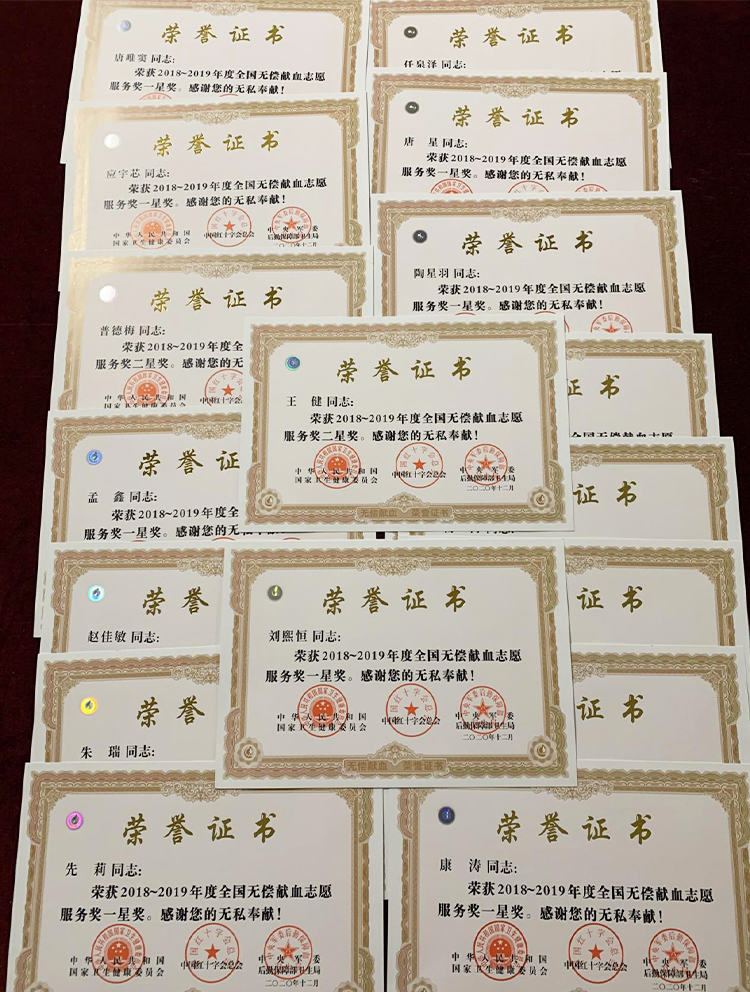 荣誉证书
唐唯窦 同志:
荣获2018~2019年度全国无偿献血志愿
服务奖一星奖。感谢您的无私奉献!
荣誉证书
任泉泽 同志:
荣誉证书
应宇芯 同志:
荣获2018~2019年度全国无偿献血志愿
服务奖一星奖。感谢您的无私奉献!
中华人民共和国
国家卫生健康委员会
中国红十字会总会
中央军委
后勤保障部卫生局
二〇二〇年十二月
荣誉证书
唐 星 同志:
荣获2018~2019年度全国无偿献血志愿
服务奖一星奖。感谢您的无私奉献!
荣誉证书
陶星羽 同志:
荣获2018~2019年度全国无偿献血志愿
服务奖一星奖。感谢您的无私奉献!
荣誉证书
普德梅 同志:
荣获2018~2019年度全
服务奖二星奖。感谢您的无
中华人民共和国
国家卫生健康委员会
荣誉证书
王 健 同志:
荣获2018~2019年度全国无偿献血志愿
服务奖二星奖。感谢您的无私奉献!
中华人民共和国
国家卫生健康委员会
中国红十字会总会
中央军委
后勤保障部卫生局
二〇二〇年十二月
无偿献血 荣誉证书
全国无偿献血志愿
荣誉证
孟 鑫 同志:
荣获2018~2019年度全
服务奖一星奖。感谢您的无
证书
荣誉
赵佳敏 同志:
证书
荣誉
朱 瑞 同志:
证书
荣誉证书
刘熙恒 同志:
荣获2018~2019年度全国无偿献血志愿
服务奖一星奖。感谢您的无私奉献!
中华人民共和国
国家卫生健康委员会
中国红十字会总会
中央军委
后勤保障部卫生局
二〇二〇年十二月
无偿献血 荣誉证书
荣誉证书
先 莉 同志:
荣获2018~2019年度全国无偿献血志愿
服务奖一星奖。感谢您的无私奉献!
中华人民共和国
国家卫生健康委员会
中国红十字会总会
中央军委
后勤保障部卫生局
二〇二〇年十二月
荣誉证书
康 涛 同志:
荣获2018~2019年度全国无偿献血志愿
服务奖一星奖。感谢您的无私奉献!
中华人民共和国
国家卫生健康委员会
中国红十字会总会
中央军委
后勤保障部卫生局
二〇二〇年十二月